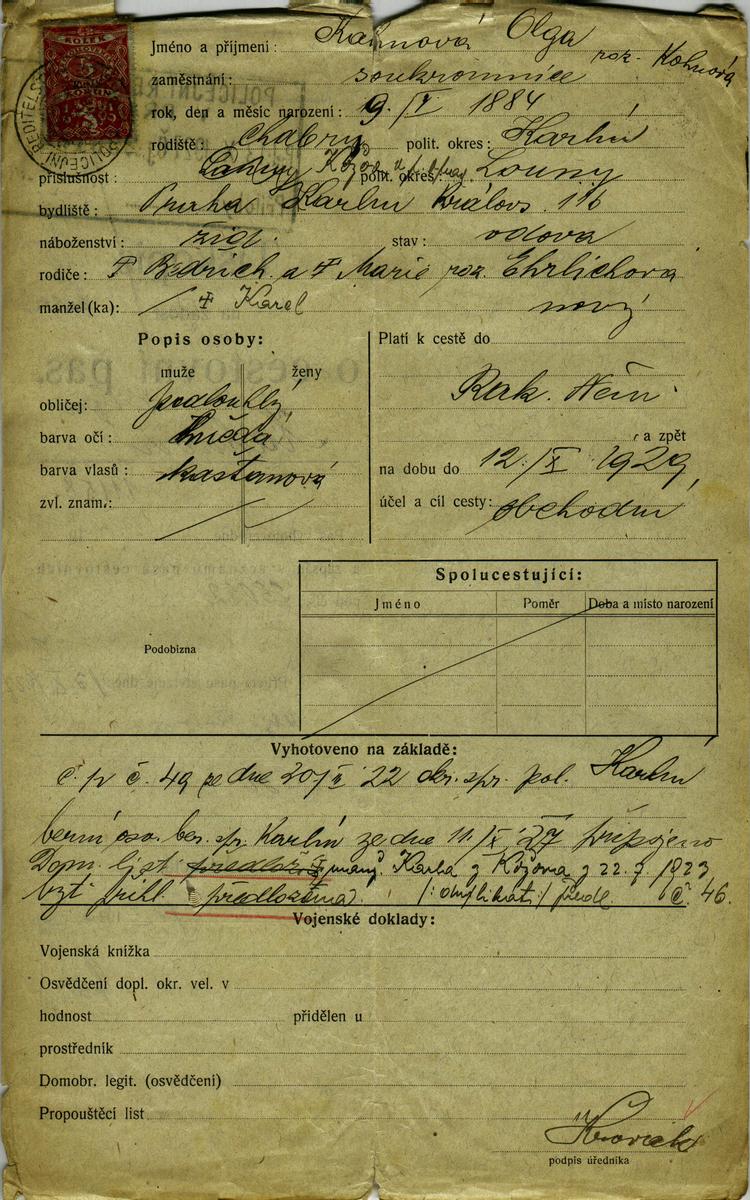 Jméno a příjmení: Kahnová Olga roz. Kohnová
zaměstnání: soukromnice
rok, den a měsíc narození: 9./V 1884
rodiště: Chabry polit. okres: Karlín
příslušnost: polit. okres: Louny
bydliště: Praha Karlín Královs. 116
náboženství: žid. stav: vdova
rodiče: † Bedřich a † Marie roz. Ehrlichova
manžel (ka): † Karel nový
Popis osoby:
muže ženy
obličej: podlouhlý
barva očí: hnědá
barva vlasů: kaštanová
zvl. znam.:
Platí k cestě do
Rak. Něm.
a zpět
na dobu do 12./X 1929
účel a cíl cesty: obchodní
Spolucestující:
Jméno Poměr Doba a místo narození
Podobizna
Vyhotoveno na základě:
č. p. č. 49 ze dne 22 okr. spr. pol. Karlín
berní spr. Karlín ze dne 11./X 27 připojeno
Dom. list předlož. Karla z 22. 7 1923
předložena /:duplikát:/ č. 46.
Vojenské doklady:
Vojenská knížka
Osvědčení dopl. okr. vel. v
hodnost přidělen u
prostředník
Domobr. legit. (osvědčení)
Propouštěcí list
podpis úředníka